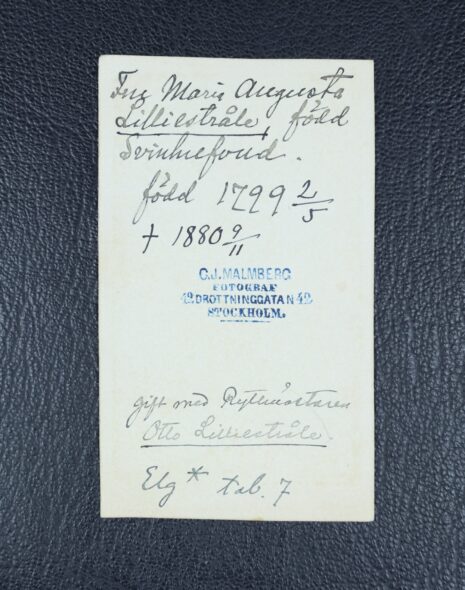 Fru Maria Augusta
Lilliestråle, född
Svinhufvud.
född 1799 2/5
† 1880 9/11
C.J. MALMBERG
FOTOGRAF
42 DROTTNINGGATAN 42
STOCKHOLM.
gift med Ryttmästaren
Otto Lilliestråle.
Elg * tab. 7